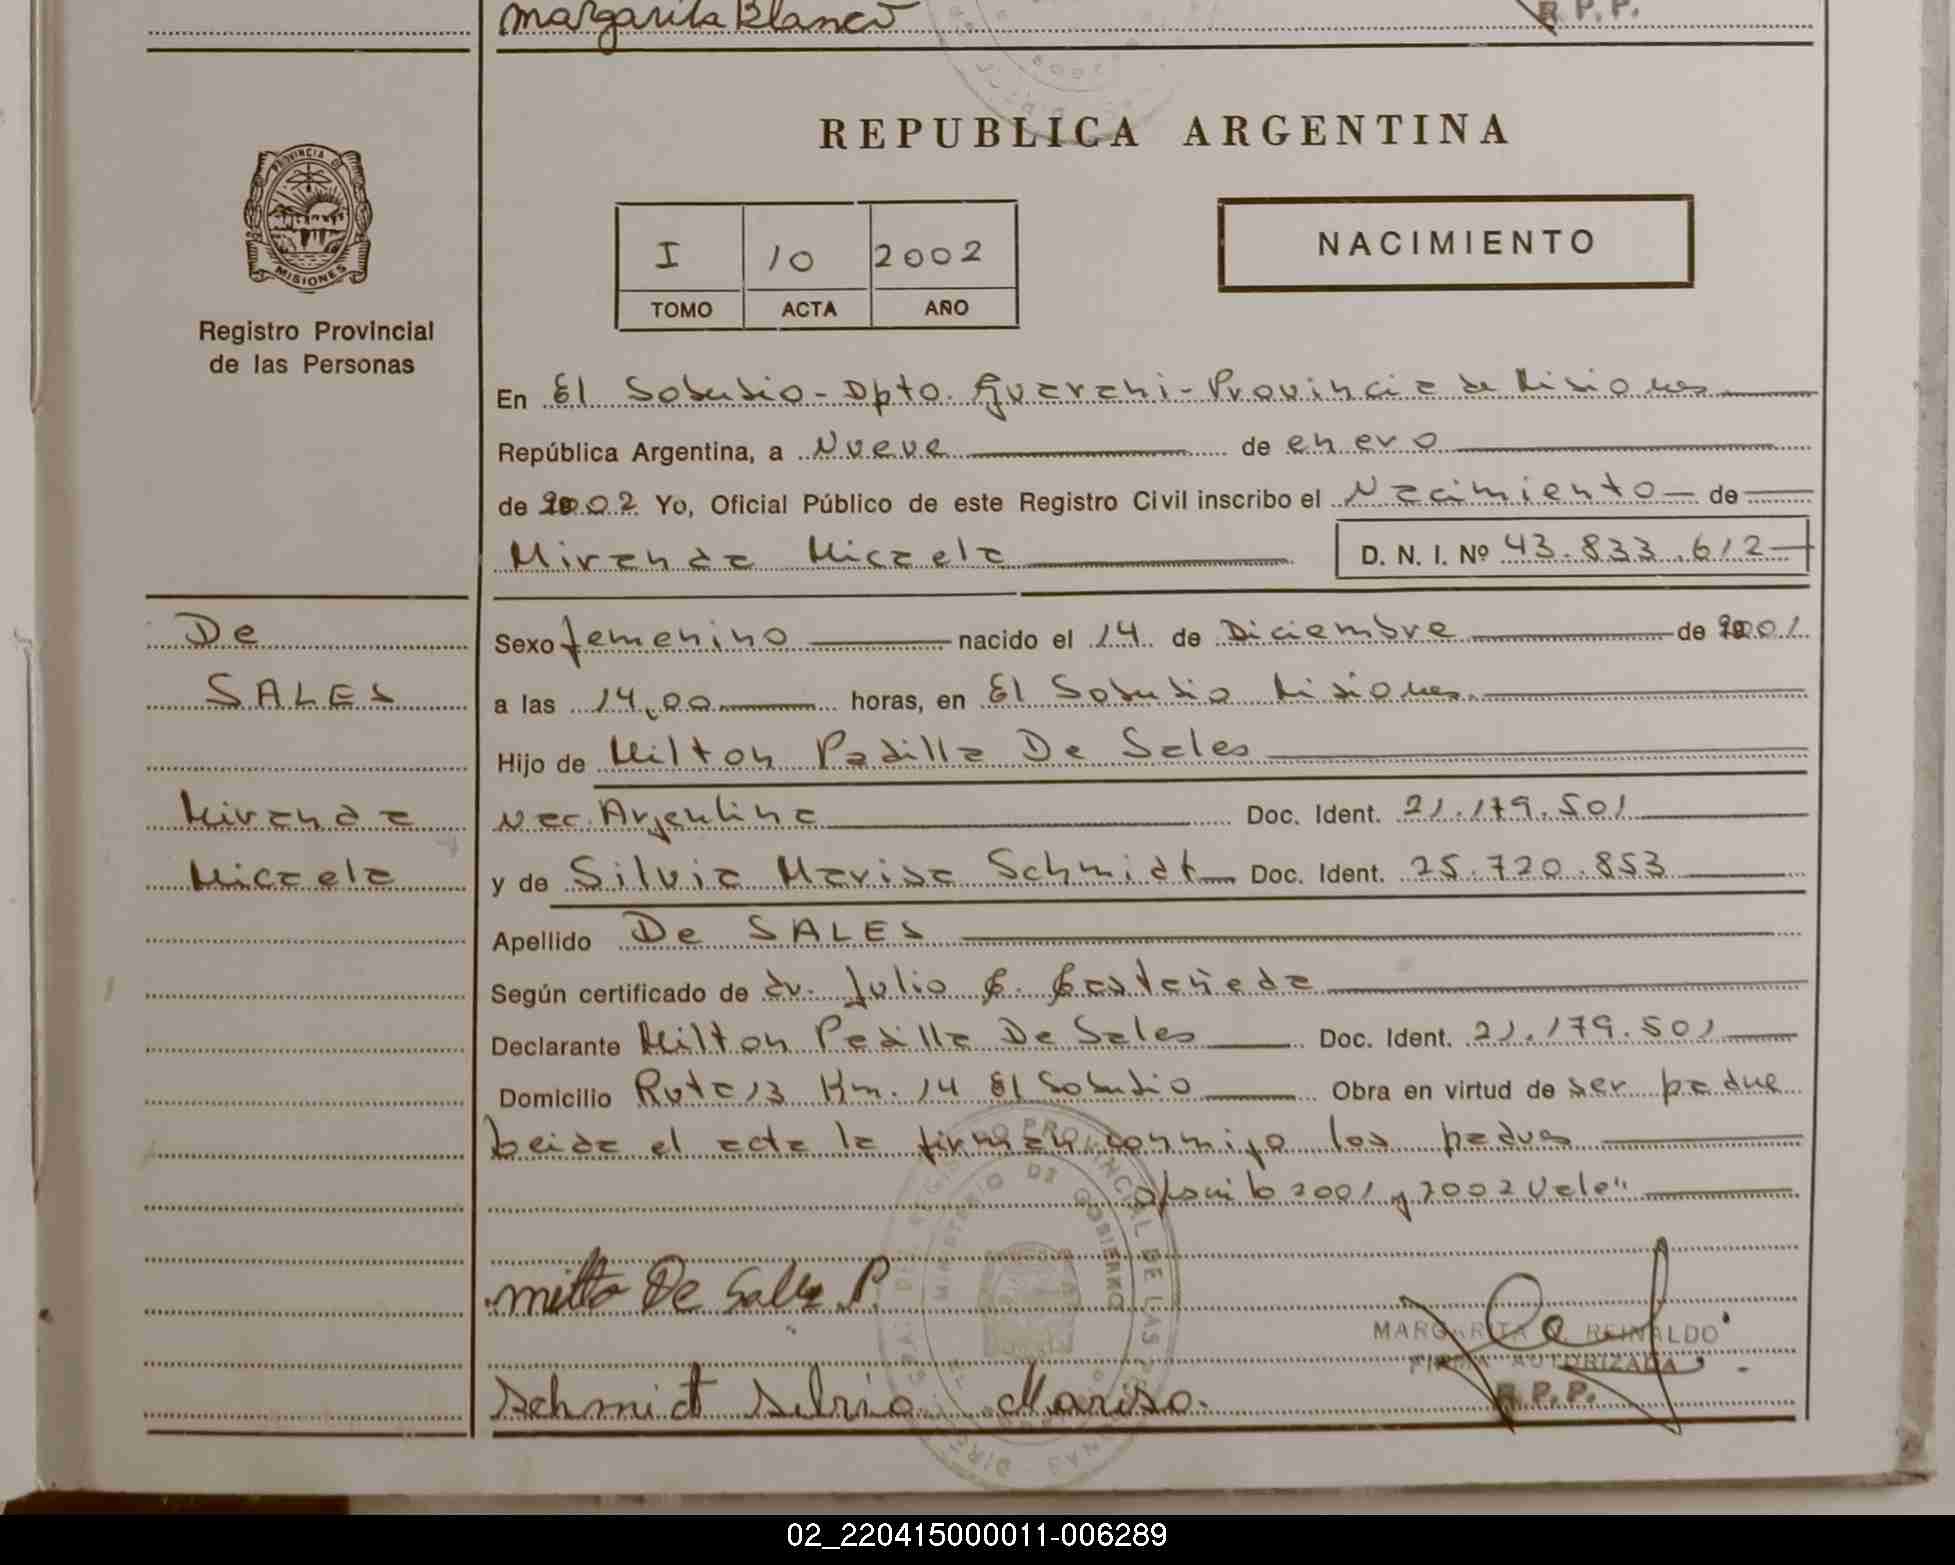 Margarita Blanco
R. P. P.
REPUBLICA ARGENTINA
PROVINCIA DE
MISIONES
Registro Provincial
de las Personas
I 10 2002
TOMO ACTA AÑO
NACIMIENTO
En El Soberbio - Dpto. Guarani - Provincia de Misiones
República Argentina, a Nueve de enero
de 2002 Yo, Oficial Público de este Registro Civil inscribo el Nacimiento de
Miranda Micaela D. N. I. Nº 43.833.612
De
SALES
Miranda
Micaela
Sexo femenino nacido el 14 de Diciembre de 2001
a las 14,00 horas, en El Soberbio Misiones
Hijo de Milton Padilla De Sales
Nac. Argentina Doc. Ident. 21.179.501
y de Silvia Marisa Schmidt Doc. Ident. 25.720.853
Apellido De SALES
Según certificado de dr. Julio C. Castañeda
Declarante Milton Padilla De Sales Doc. Ident. 21.179.501
Domicilio Ruta 13 Km. 14 El Soberbio Obra en virtud de ser padre
Leida el acta la firman conmigo los padres
2001 y 2002 Vale"
Milto De Sales P.
MARGARITA REINALDO
FIRMA AUTORIZADA
R. P. P.
Schmidt Silvia Marisa.
02_220415000011-006289